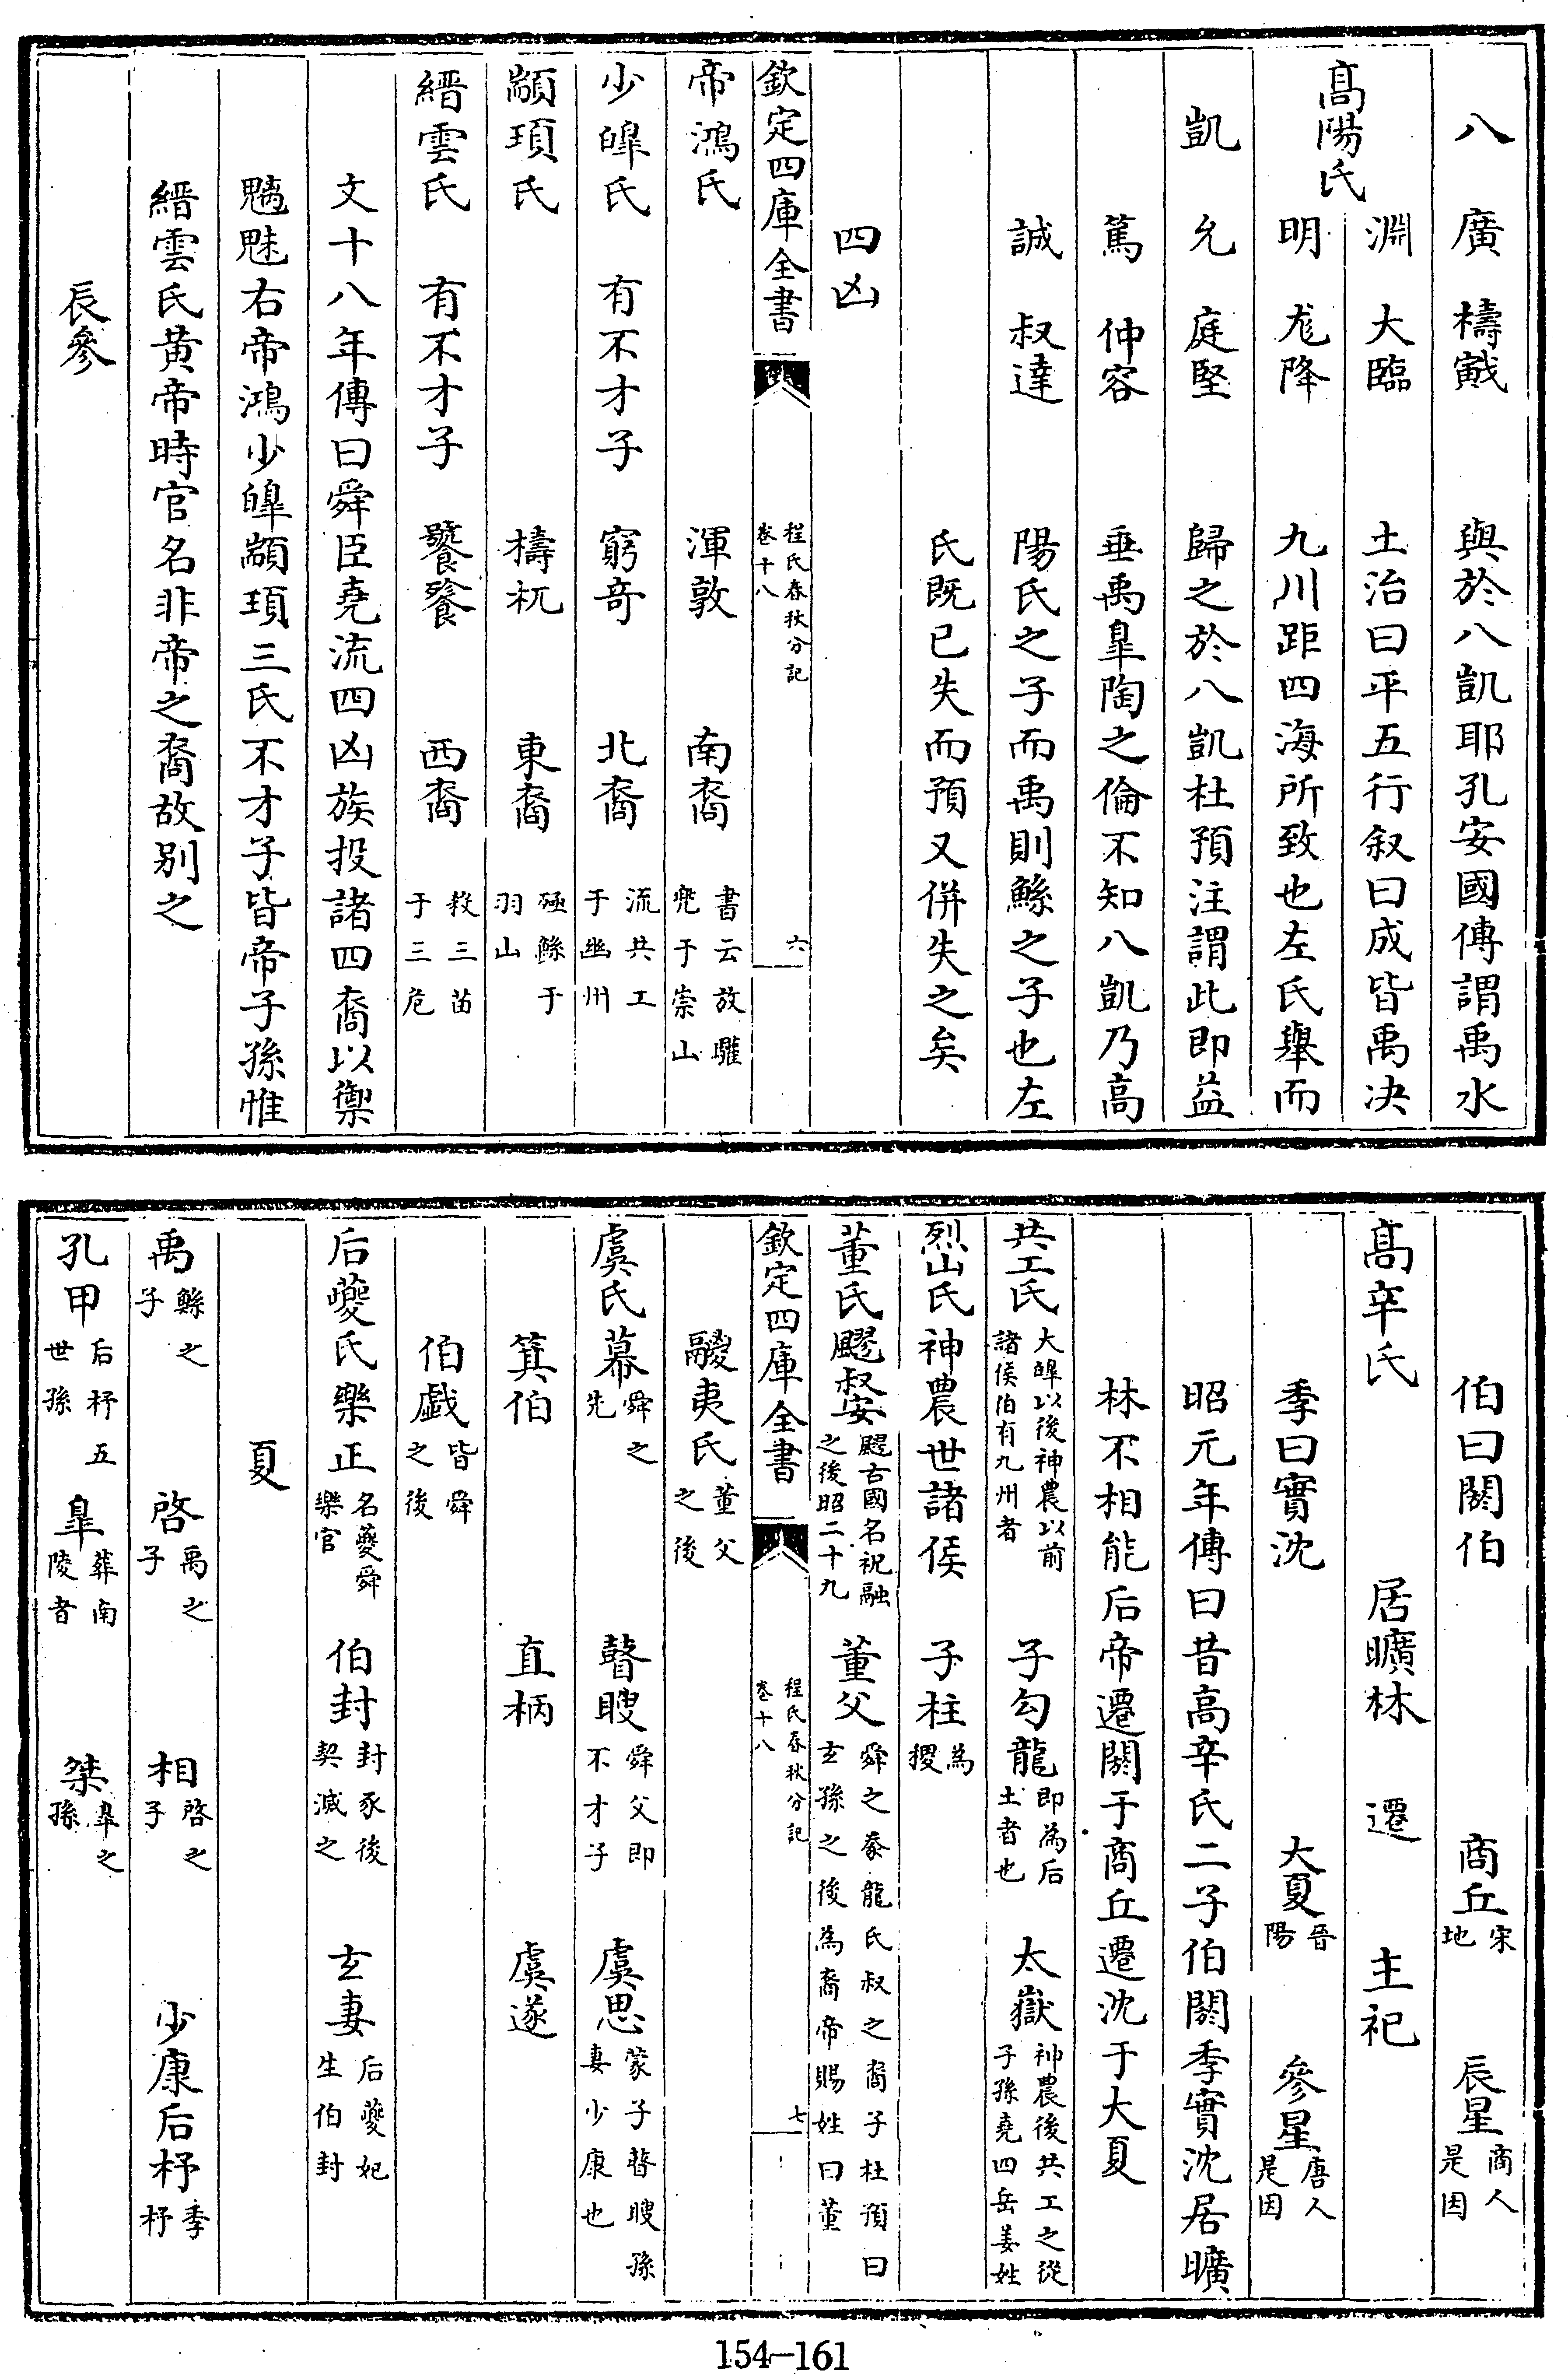 八　廣　檮戭　與於八凱耶孔安國傳謂禹水
高陽氏
淵　大臨　土治曰平五行叙曰成皆禹決
明　尨降　九川距四海所致也左氏舉而
凱　允　庭堅　歸之於八凱杜預注謂此即益
篤　仲容　垂禹臯陶之倫不知八凱乃高
誠　叔達　陽氏之子而禹則鯀之子也左
氏既已失而預又併失之矣
四凶
欽定四庫全書　程氏春秋分記　卷十八　六
帝鴻氏　渾敦　南裔　書云放驩兜于崇山
少皥氏　有不才子　窮奇　北裔　流共工于幽州
顓頊氏　檮杌　東裔　殛鯀于羽山
縉雲氏　有不才子　饕餮　西裔　殺三苗于三危
文十八年傳曰舜臣堯流四凶族投諸四裔以禦
魑魅右帝鴻少皥顓頊三氏不才子皆帝子孫惟
縉雲氏黄帝時官名非帝之裔故别之
辰參
伯曰閼伯　商丘　宋地　辰星　商人是因
高辛氏　居曠林　遷　主祀
季曰實沈　大夏　晉陽　參星　唐人是因
昭元年傳曰昔高辛氏二子伯閼季實沈居曠
林不相能后帝遷閼于商丘遷沈于大夏
共工氏　大皥以後神農以前諸侯伯有九州者　子勾龍　即為后土者也　太嶽　神農後共工之從子孫堯四岳姜姓
烈山氏神農世諸侯　子柱　為稷
董氏飂叔安　飂古國名祝融之後昭二十九　董父　舜之豢龍氏叔之裔子杜預曰玄孫之後為裔帝賜姓曰董
欽定四庫全書　程氏春秋分記　卷十八　七
鬷夷氏　董父之後
虞氏幕　舜之先　瞽瞍　舜父即不才子　虞思　蒙子瞽瞍孫妻少康也
箕伯　直柄　虞遂
伯戯　皆舜之後
后夔氏樂正　名夔舜樂官　伯封　封豕後契滅之　玄妻　后夔妃生伯封
夏
禹　鯀之子　啓　禹之子　相　啓之子　少康后杼　季杼
孔甲　后杼五世孫　臯　葬南陵者　桀　臯之孫
154—161